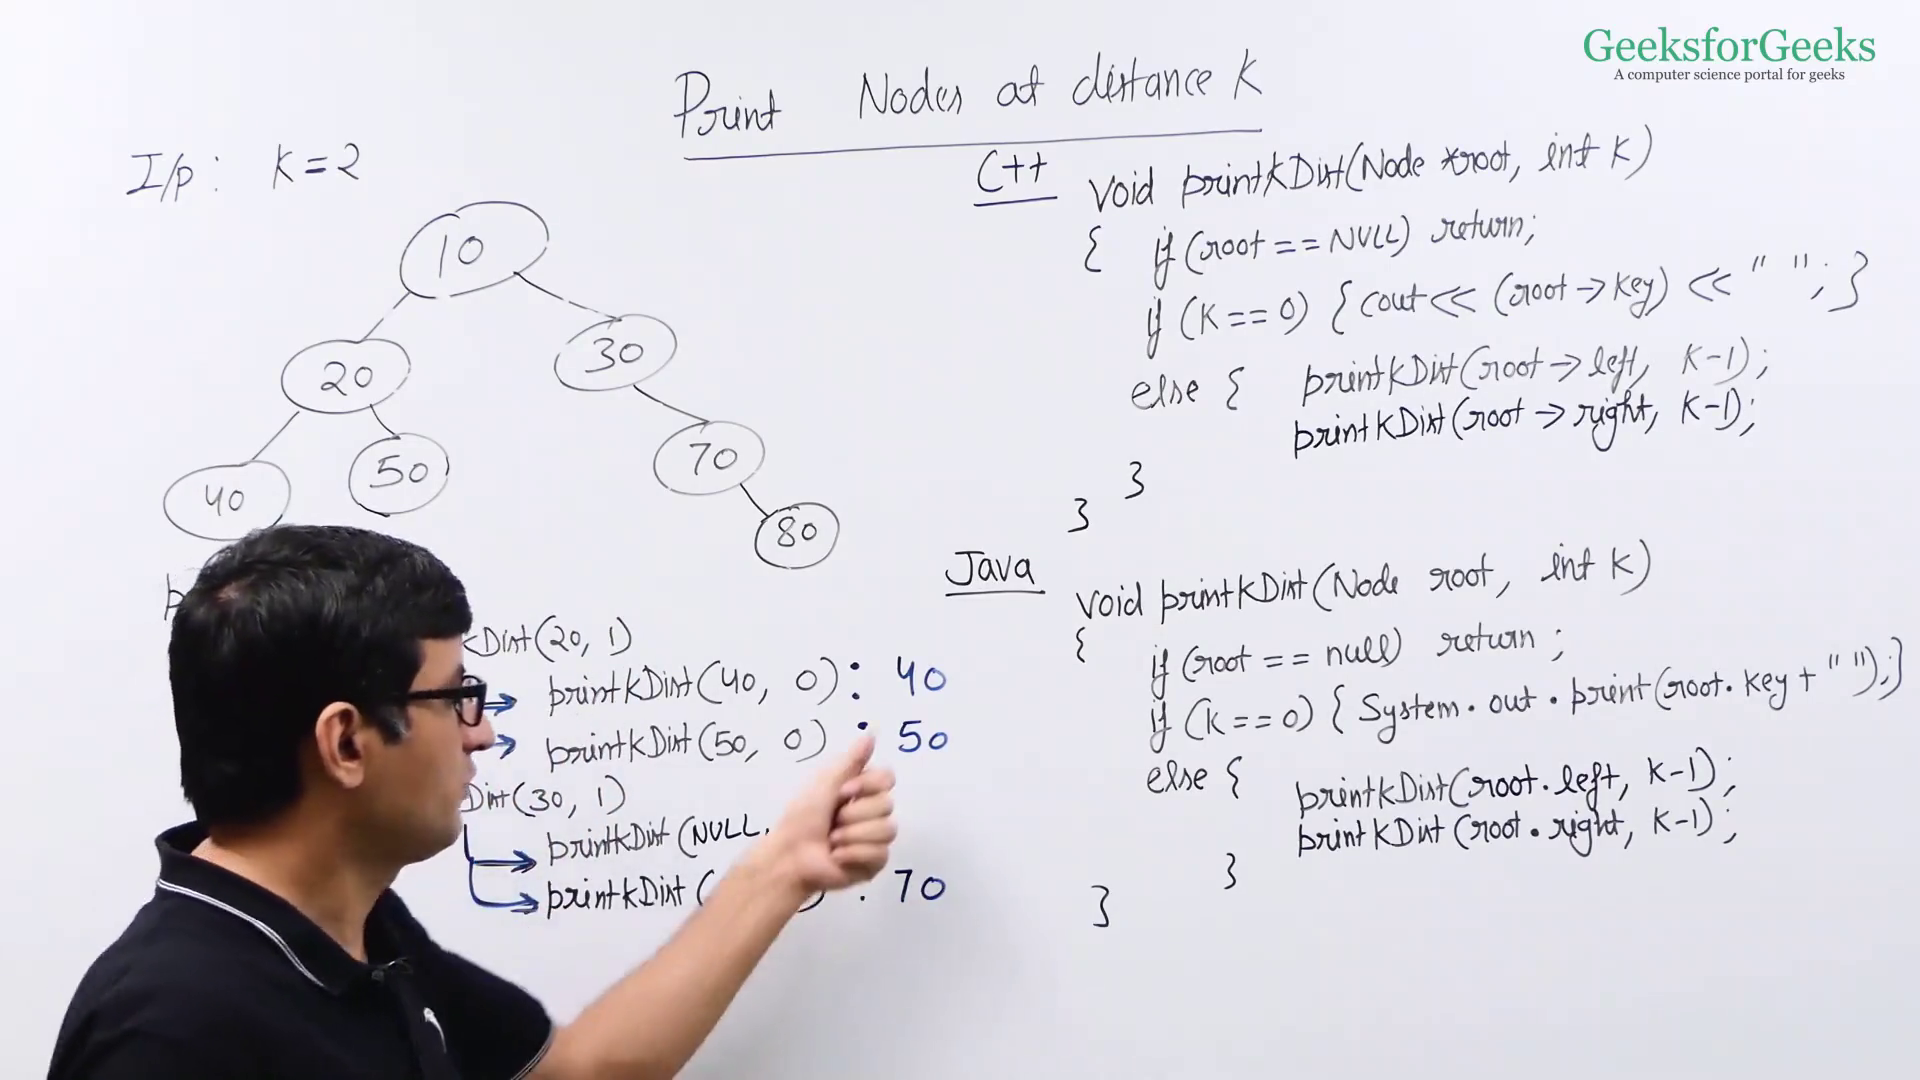 GeeksforGeeks
A computer science portal for geeks
Print Nodes at distance K
I/p: K=2
10
20
30
40
50
70
80
kDist(20, 1)
printkDist(40, 0): 40
printkDist(50, 0): 50
Dist(30, 1)
printkDist(NULL,
printkDist( : 70
C++
void printkDist(Node *root, int K)
{ if (root == NULL) return;
if (K == 0) { cout << (root->key) << " "; }
else { printkDist(root->left, K-1);
printkDist(root->right, K-1);
}
}
Java
void printkDist(Node root, int K)
{
if (root == null) return;
if (K == 0) { System.out.print(root.key + " "); }
else { printkDist(root.left, K-1);
printkDist(root.right, K-1);
}
}